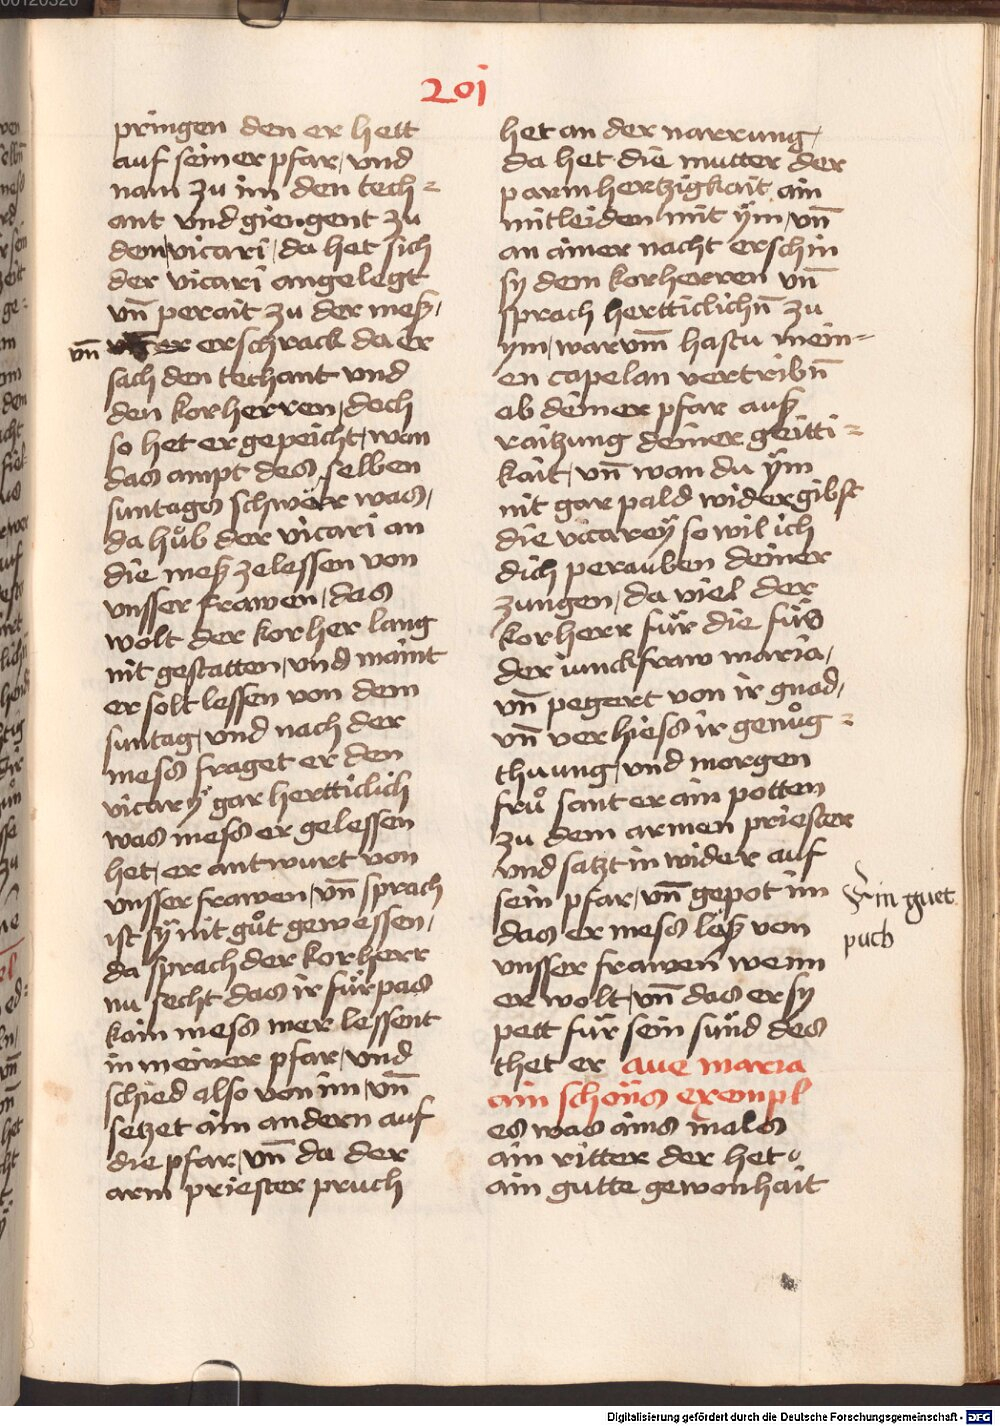 201
pringen den er hett
auf seiner pfar, vnd
nam zu im den tech=
ant vnd giengent zu
dem vicari, da het sich
der vicari angelegt
vn̄ perait zu der meß,
vn̄ er erschrack da er
sach den techant vnd
den korherren, doch
so het er gepeicht, wan
das ampt des selben
suntags schwär was,
da hůb der vicari an
die meß zelessen von
vnsser frawen, das
wolt der korher lang
nit gestatten, vnd maint
er solt lessen von dem
suntag, vnd nach der
mess fraget er den
vicarÿ gar hertticlich
was mess er gelessen
het, er antwurt von
vnsser frawen, vn̄ sprach
ist sÿ nit gůt gewessen,
da sprach der korherr
nu secht das ir fürpas
kain mess mer lessent
in meiner pfar, vnd
schied also von im, vn̄
setzet ain andern auf
die pfar, vn̄ da der
arm priester pruch
het an der narrung,
da het die mutter der
parmhertzigkait ain
mitleiden mit ÿm, vn̄
an ainer nacht erschin
sy dem korherren vn̄
sprach hertticlichn̄ zu
ym, warvm̄ hastu mein=
en capelan vertribn̄
ab deiner pfar auß
raitzung deiner geitti=
kait, vn̄ wan du ÿm
nit gar pald widergibst
die vicareÿ so wil ich
dich perauben deiner
zungen, da viel der
korherr für die füs
der iunckfraw maria,
vn̄ pegert von ir gnad,
vn̄ verhiess ir genůg=
thuung, vnd morgen
frů sant er ain potten
zu dem armen priester
vnd satzt in wider auf
sein pfar, vn̄ gepot im
das er mess läß von
vnsser frawen wenn
er wolt, vn̄ das er sy
pett für sein sünd des
thet er aue maria
ain schöns exempl
es was ains mals
ain ritter der het
ain gutte gewonhait
in guet
puch
Digitalisierung gefördert durch die Deutsche Forschungsgemeinschaft - DFG